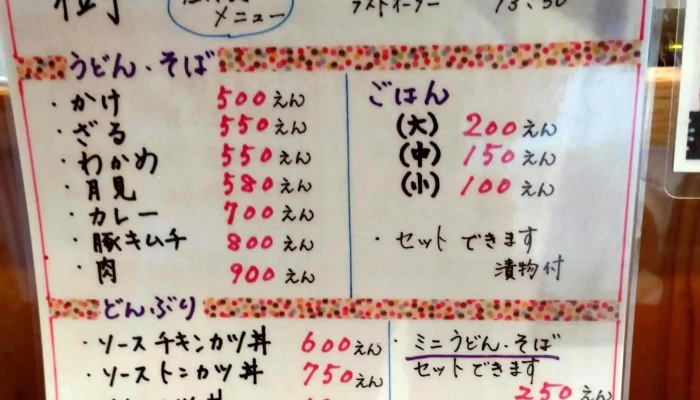 メニュー
ラストオーダー 13:30
うどん・そば
・かけ 500えん
・ざる 550えん
・わかめ 550えん
・月見 580えん
・カレー 700えん
・豚キムチ 800えん
・肉 900えん
ごはん
(大) 200えん
(中) 150えん
(小) 100えん
・セットできます
漬物付
どんぶり
・ソースチキンカツ丼 600えん
・ソーストンカツ丼 750えん
・ミニうどん・そば
セットできます
250えん